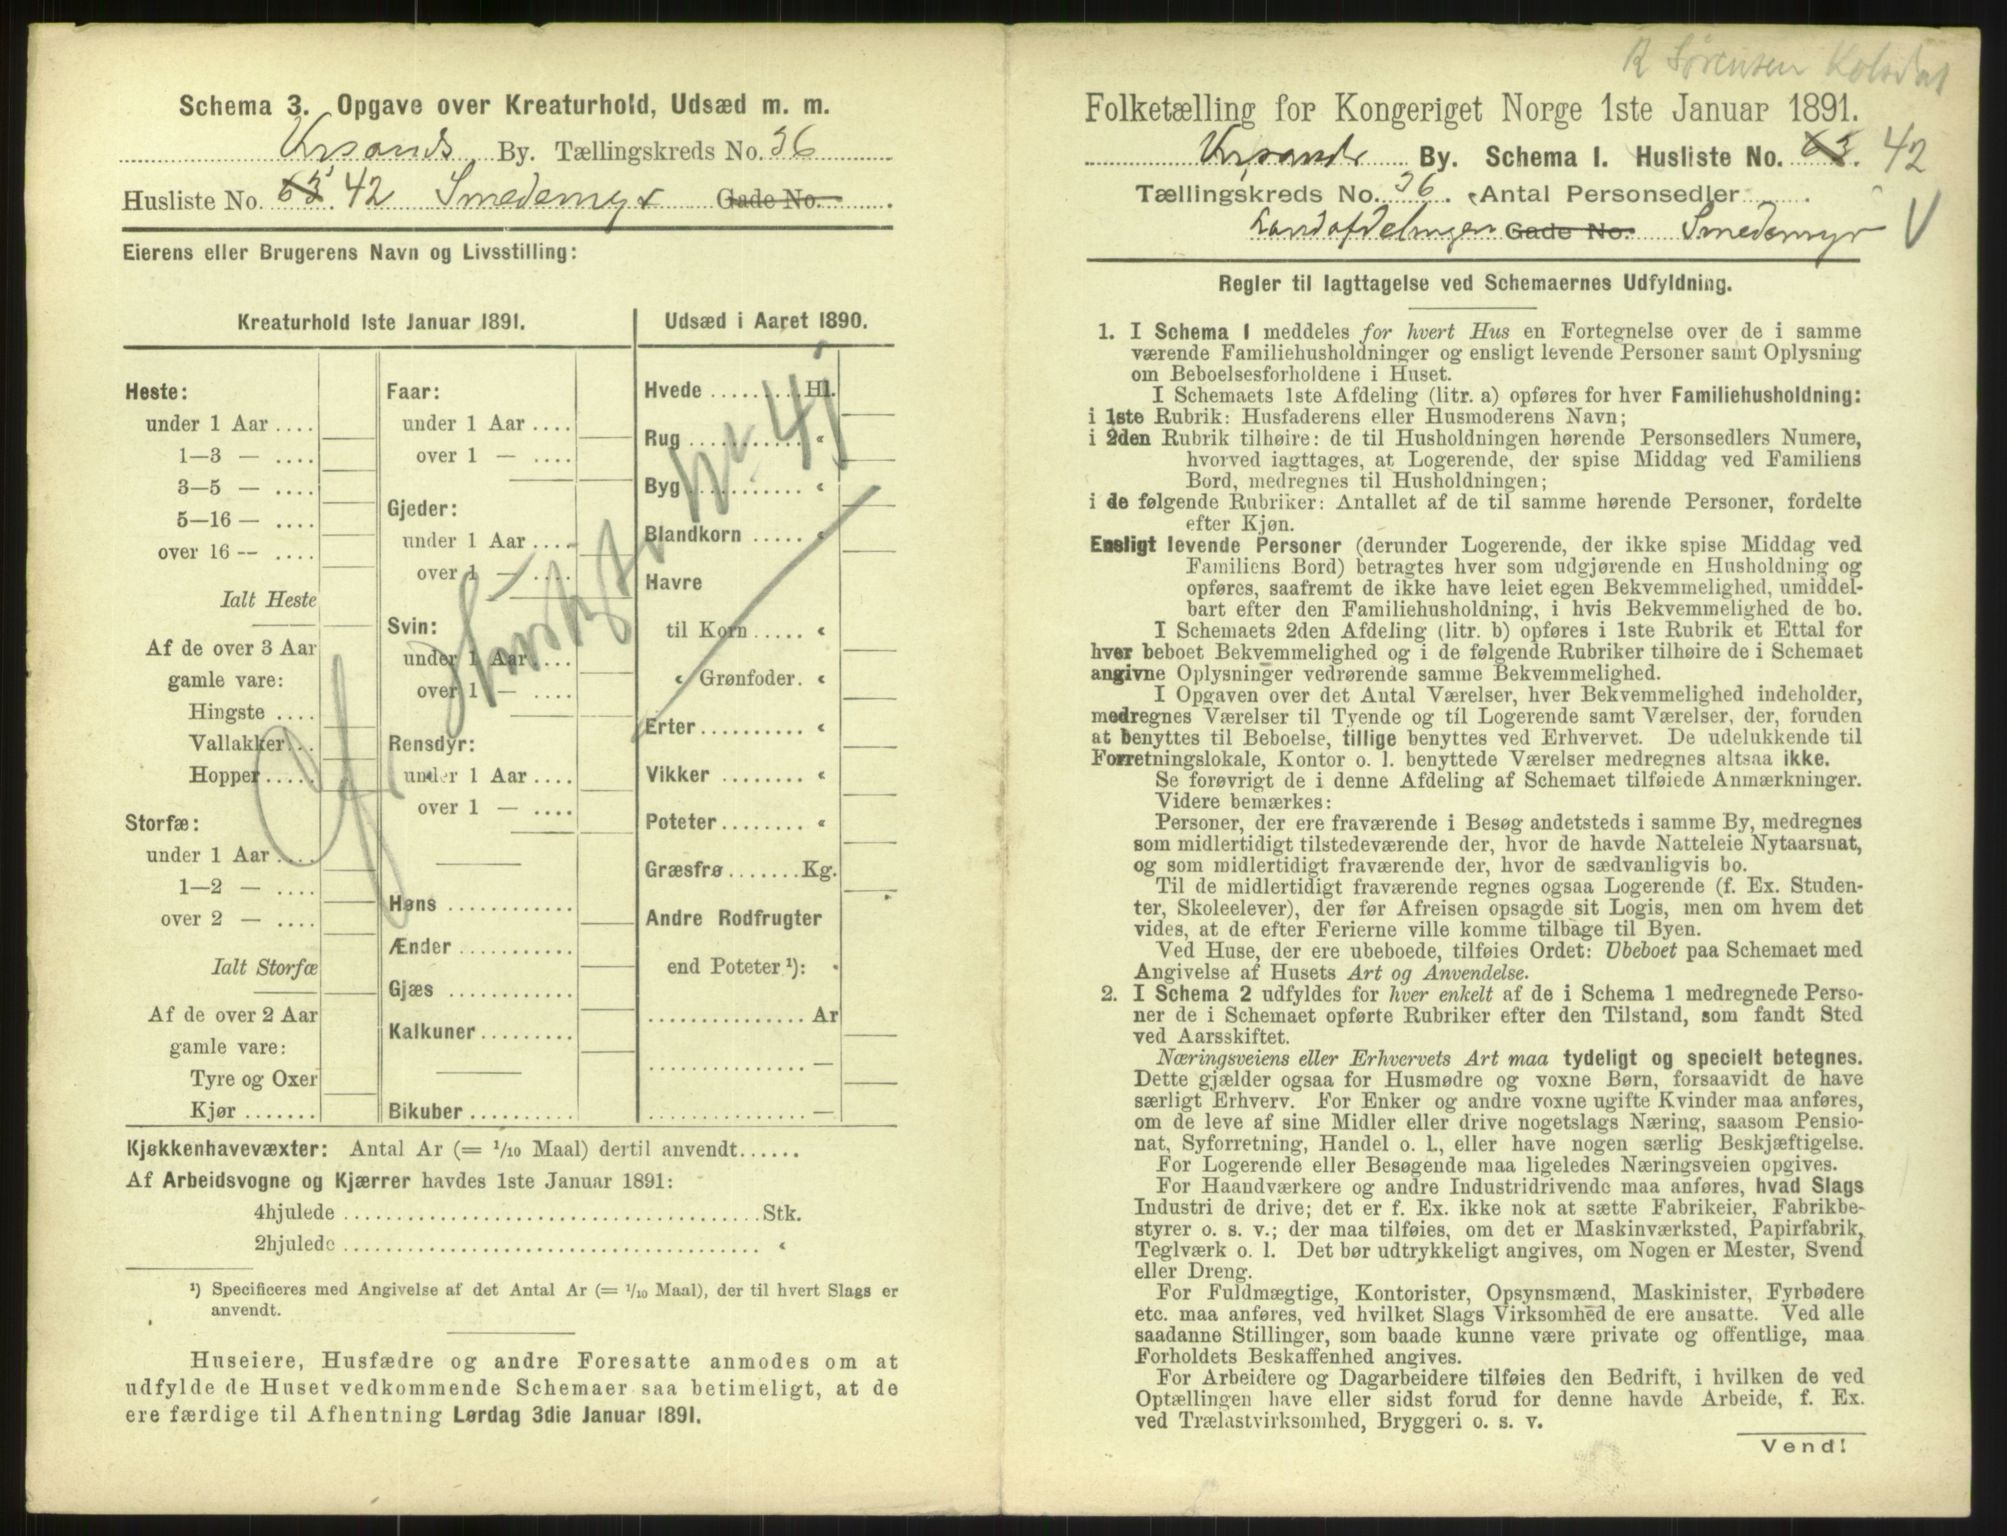 Schema 3. Opgave over Kreaturhold, Udsæd m. m.
Krsands By. Tællingskreds No. 36
Husliste No. 63. 42 Smedemyr Gade No.
Eierens eller Brugerens Navn og Livsstilling:
Kreaturhold 1ste Januar 1891.
Heste:
under 1 Aar ....
1—3 — ....
3—5 — ....
5—16 — ....
over 16 -- ....
Ialt Heste
Af de over 3 Aar
gamle vare:
Hingste ....
Vallakker...
Hopper.....
Storfæ:
under 1 Aar ....
1—2 — ....
over 2 — ....
Ialt Storfæ
Af de over 2 Aar
gamle vare:
Tyre og Oxer
Kjør .......
Faar:
under 1 Aar ....
over 1 — ....
Gjeder:
under 1 Aar ....
over 1 — ....
Svin:
under 1 Aar ....
over 1 — ....
Rensdyr:
under 1 Aar ....
over 1 — ....
Høns ............
Ænder ............
Gjæs ............
Kalkuner ..........
Bikuber ..........
Udsæd i Aaret 1890.
Hvede ......... Hl.
Rug ........... «
Byg ........... «
Blandkorn ..... «
Havre
til Korn ..... «
« Grønfoder. «
Erter .......... «
Vikker ........ «
Poteter ........ «
Græsfrø ....... Kg.
Andre Rodfrugter
end Poteter ¹):
............... Ar
............... —
............... —
Cfr Husliste No 41
Kjøkkenhavevæxter: Antal Ar (= 1/10 Maal) dertil anvendt......
Af Arbeidsvogne og Kjærrer havdes 1ste Januar 1891:
4hjulede ........................................ Stk.
2hjulede ........................................ «
¹) Specificeres med Angivelse af det Antal Ar (= 1/10 Maal), der til hvert Slags er
anvendt.
Huseiere, Husfædre og andre Foresatte anmodes om at
udfylde de Huset vedkommende Schemaer saa betimeligt, at de
ere færdige til Afhentning Lørdag 3die Januar 1891.
R Sørensen Kolsdal
Folketælling for Kongeriget Norge 1ste Januar 1891.
Krsands By. Schema I. Husliste No. 63. 42
Tællingskreds No. 36. Antal Personsedler
Landafdelingen Gade No. Smedemyr V
Regler til Iagttagelse ved Schemaernes Udfyldning.
1. I Schema 1 meddeles for hvert Hus en Fortegnelse over de i samme
værende Familiehusholdninger og ensligt levende Personer samt Oplysning
om Beboelsesforholdene i Huset.
I Schemaets 1ste Afdeling (litr. a) opføres for hver Familiehusholdning:
i 1ste Rubrik: Husfaderens eller Husmoderens Navn;
i 2den Rubrik tilhøire: de til Husholdningen hørende Personsedlers Numere,
hvorved iagttages, at Logerende, der spise Middag ved Familiens
Bord, medregnes til Husholdningen;
i de følgende Rubriker: Antallet af de til samme hørende Personer, fordelte
efter Kjøn.
Ensligt levende Personer (derunder Logerende, der ikke spise Middag ved
Familiens Bord) betragtes hver som udgjørende en Husholdning og
opføres, saafremt de ikke have leiet egen Bekvemmelighed, umiddel-
bart efter den Familiehusholdning, i hvis Bekvemmelighed de bo.
I Schemaets 2den Afdeling (litr. b) opføres i 1ste Rubrik et Ettal for
hver beboet Bekvemmelighed og i de følgende Rubriker tilhøire de i Schemaet
angivne Oplysninger vedrørende samme Bekvemmelighed.
I Opgaven over det Antal Værelser, hver Bekvemmelighed indeholder,
medregnes Værelser til Tyende og til Logerende samt Værelser, der, foruden
at benyttes til Beboelse, tillige benyttes ved Erhvervet. De udelukkende til
Forretningslokale, Kontor o. l. benyttede Værelser medregnes altsaa ikke.
Se forøvrigt de i denne Afdeling af Schemaet tilføiede Anmærkninger.
Videre bemærkes:
Personer, der ere fraværende i Besøg andetsteds i samme By, medregnes
som midlertidigt tilstedeværende der, hvor de havde Natteleie Nytaarsnat,
og som midlertidigt fraværende der, hvor de sædvanligvis bo.
Til de midlertidigt fraværende regnes ogsaa Logerende (f. Ex. Studen-
ter, Skoleelever), der før Afreisen opsagde sit Logis, men om hvem det
vides, at de efter Ferierne ville komme tilbage til Byen.
Ved Huse, der ere ubeboede, tilføies Ordet: Ubeboet paa Schemaet med
Angivelse af Husets Art og Anvendelse.
2. I Schema 2 udfyldes for hver enkelt af de i Schema 1 medregnede Perso-
ner de i Schemaet opførte Rubriker efter den Tilstand, som fandt Sted
ved Aarsskiftet.
Næringsveiens eller Erhvervets Art maa tydeligt og specielt betegnes.
Dette gjælder ogsaa for Husmødre og voxne Børn, forsaavidt de have
særligt Erhverv. For Enker og andre voxne ugifte Kvinder maa anføres,
om de leve af sine Midler eller drive nogetslags Næring, saasom Pensio-
nat, Syforretning, Handel o. l., eller have nogen særlig Beskjæftigelse.
For Logerende eller Besøgende maa ligeledes Næringsveien opgives.
For Haandværkere og andre Industridrivende maa anføres, hvad Slags
Industri de drive; det er f. Ex. ikke nok at sætte Fabrikeier, Fabrikbe-
styrer o. s. v.; der maa tilføies, om det er Maskinværksted, Papirfabrik,
Teglværk o. l. Det bør udtrykkeligt angives, om Nogen er Mester, Svend
eller Dreng.
For Fuldmægtige, Kontorister, Opsynsmænd, Maskinister, Fyrbødere
etc. maa anføres, ved hvilket Slags Virksomhed de ere ansatte. Ved alle
saadanne Stillinger, som baade kunne være private og offentlige, maa
Forholdets Beskaffenhed angives.
For Arbeidere og Dagarbeidere tilføies den Bedrift, i hvilken de ved
Optællingen have eller sidst forud for denne havde Arbeide, f. Ex.
ved Trælastvirksomhed, Bryggeri o. s. v.
Vend!